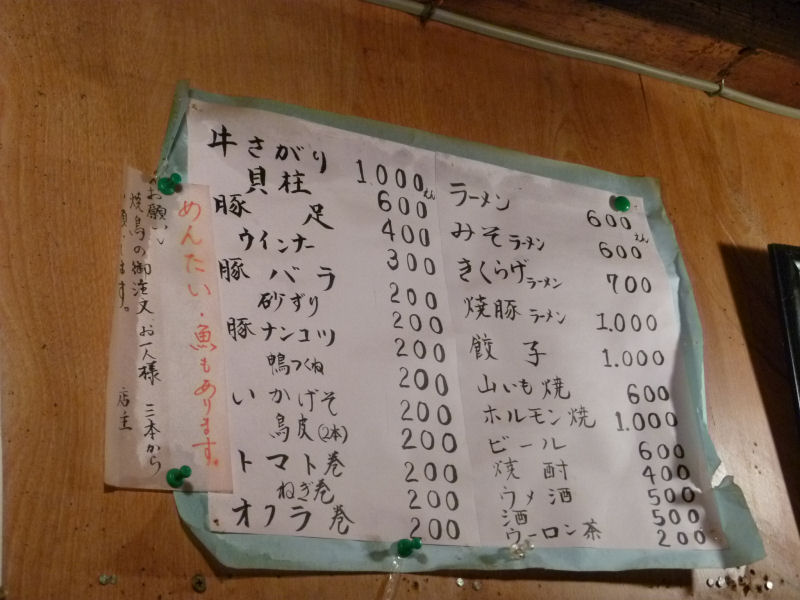 お願い
焼鳥の御注文 お一人様 三本から
店主
めんたい・魚もあります。
牛さがり 1.000えん
貝柱 600
豚足 400
ウインナー 300
豚バラ 200
砂ずり 200
豚ナンコツ 200
鴨つくね 200
いかげそ 200
鳥皮(2本) 200
トマト巻 200
ねぎ巻 200
オクラ巻 200
ラーメン 600えん
みそラーメン 600
きくらげラーメン 700
焼豚ラーメン 1.000
餃子 1.000
山いも焼 600
ホルモン焼 1.000
ビール 600
焼酎 400
ウメ酒 500
酒 500
ウーロン茶 200